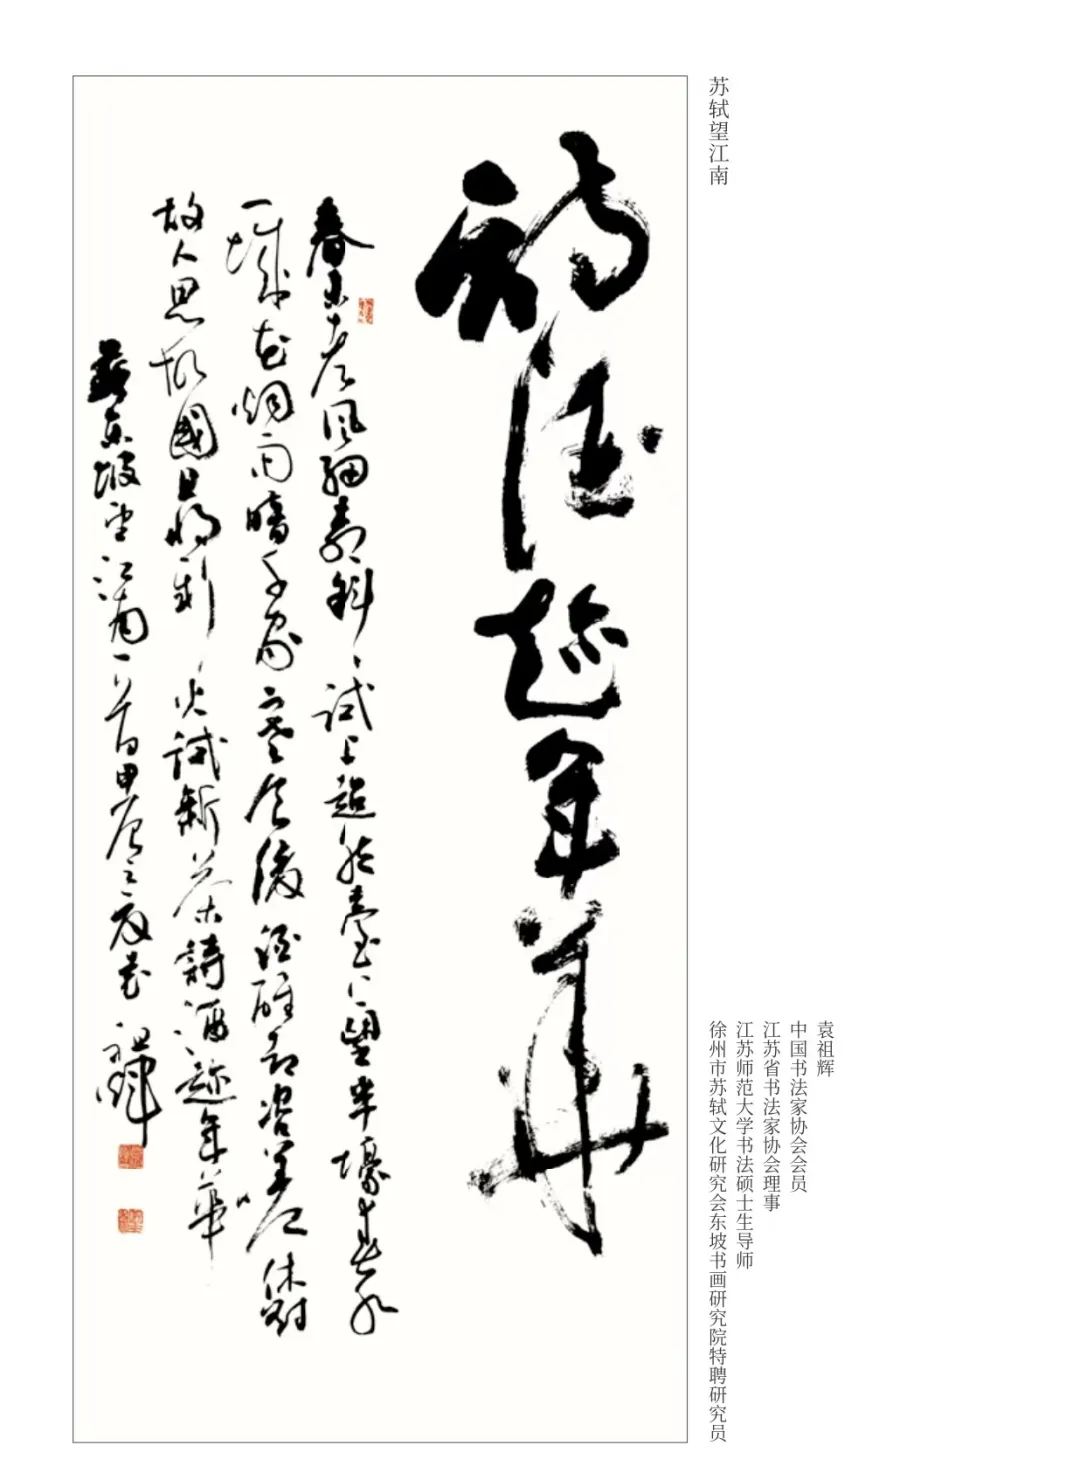 苏轼望江南
詩酒趁年華
春未老風細柳斜斜試上超然臺上望半壕春水
一城花烟雨暗千家寒食後酒醒却咨嗟休對
故人思故國且將新火試新茶詩酒趁年華
蘇東坡望江南一首甲辰之 祖輝
袁祖辉
中国书法家协会会员
江苏省书法家协会理事
江苏师范大学书法硕士生导师
徐州市苏轼文化研究会东坡书画研究院特聘研究员